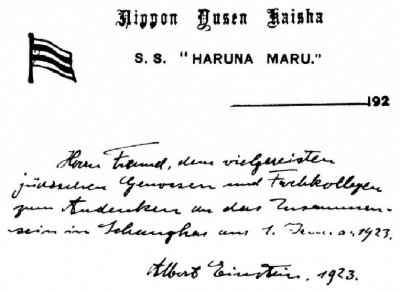 Nippon Yusen Kaisha
S. S. "HARUNA MARU."
192
Herrn Freund, dem vielgereisten
jüdischen Genossen und Fachkollegen
zum Andenken an das Zusammen-
sein in Schanghai am 1. Januar 1923.
Albert Einstein. 1923.